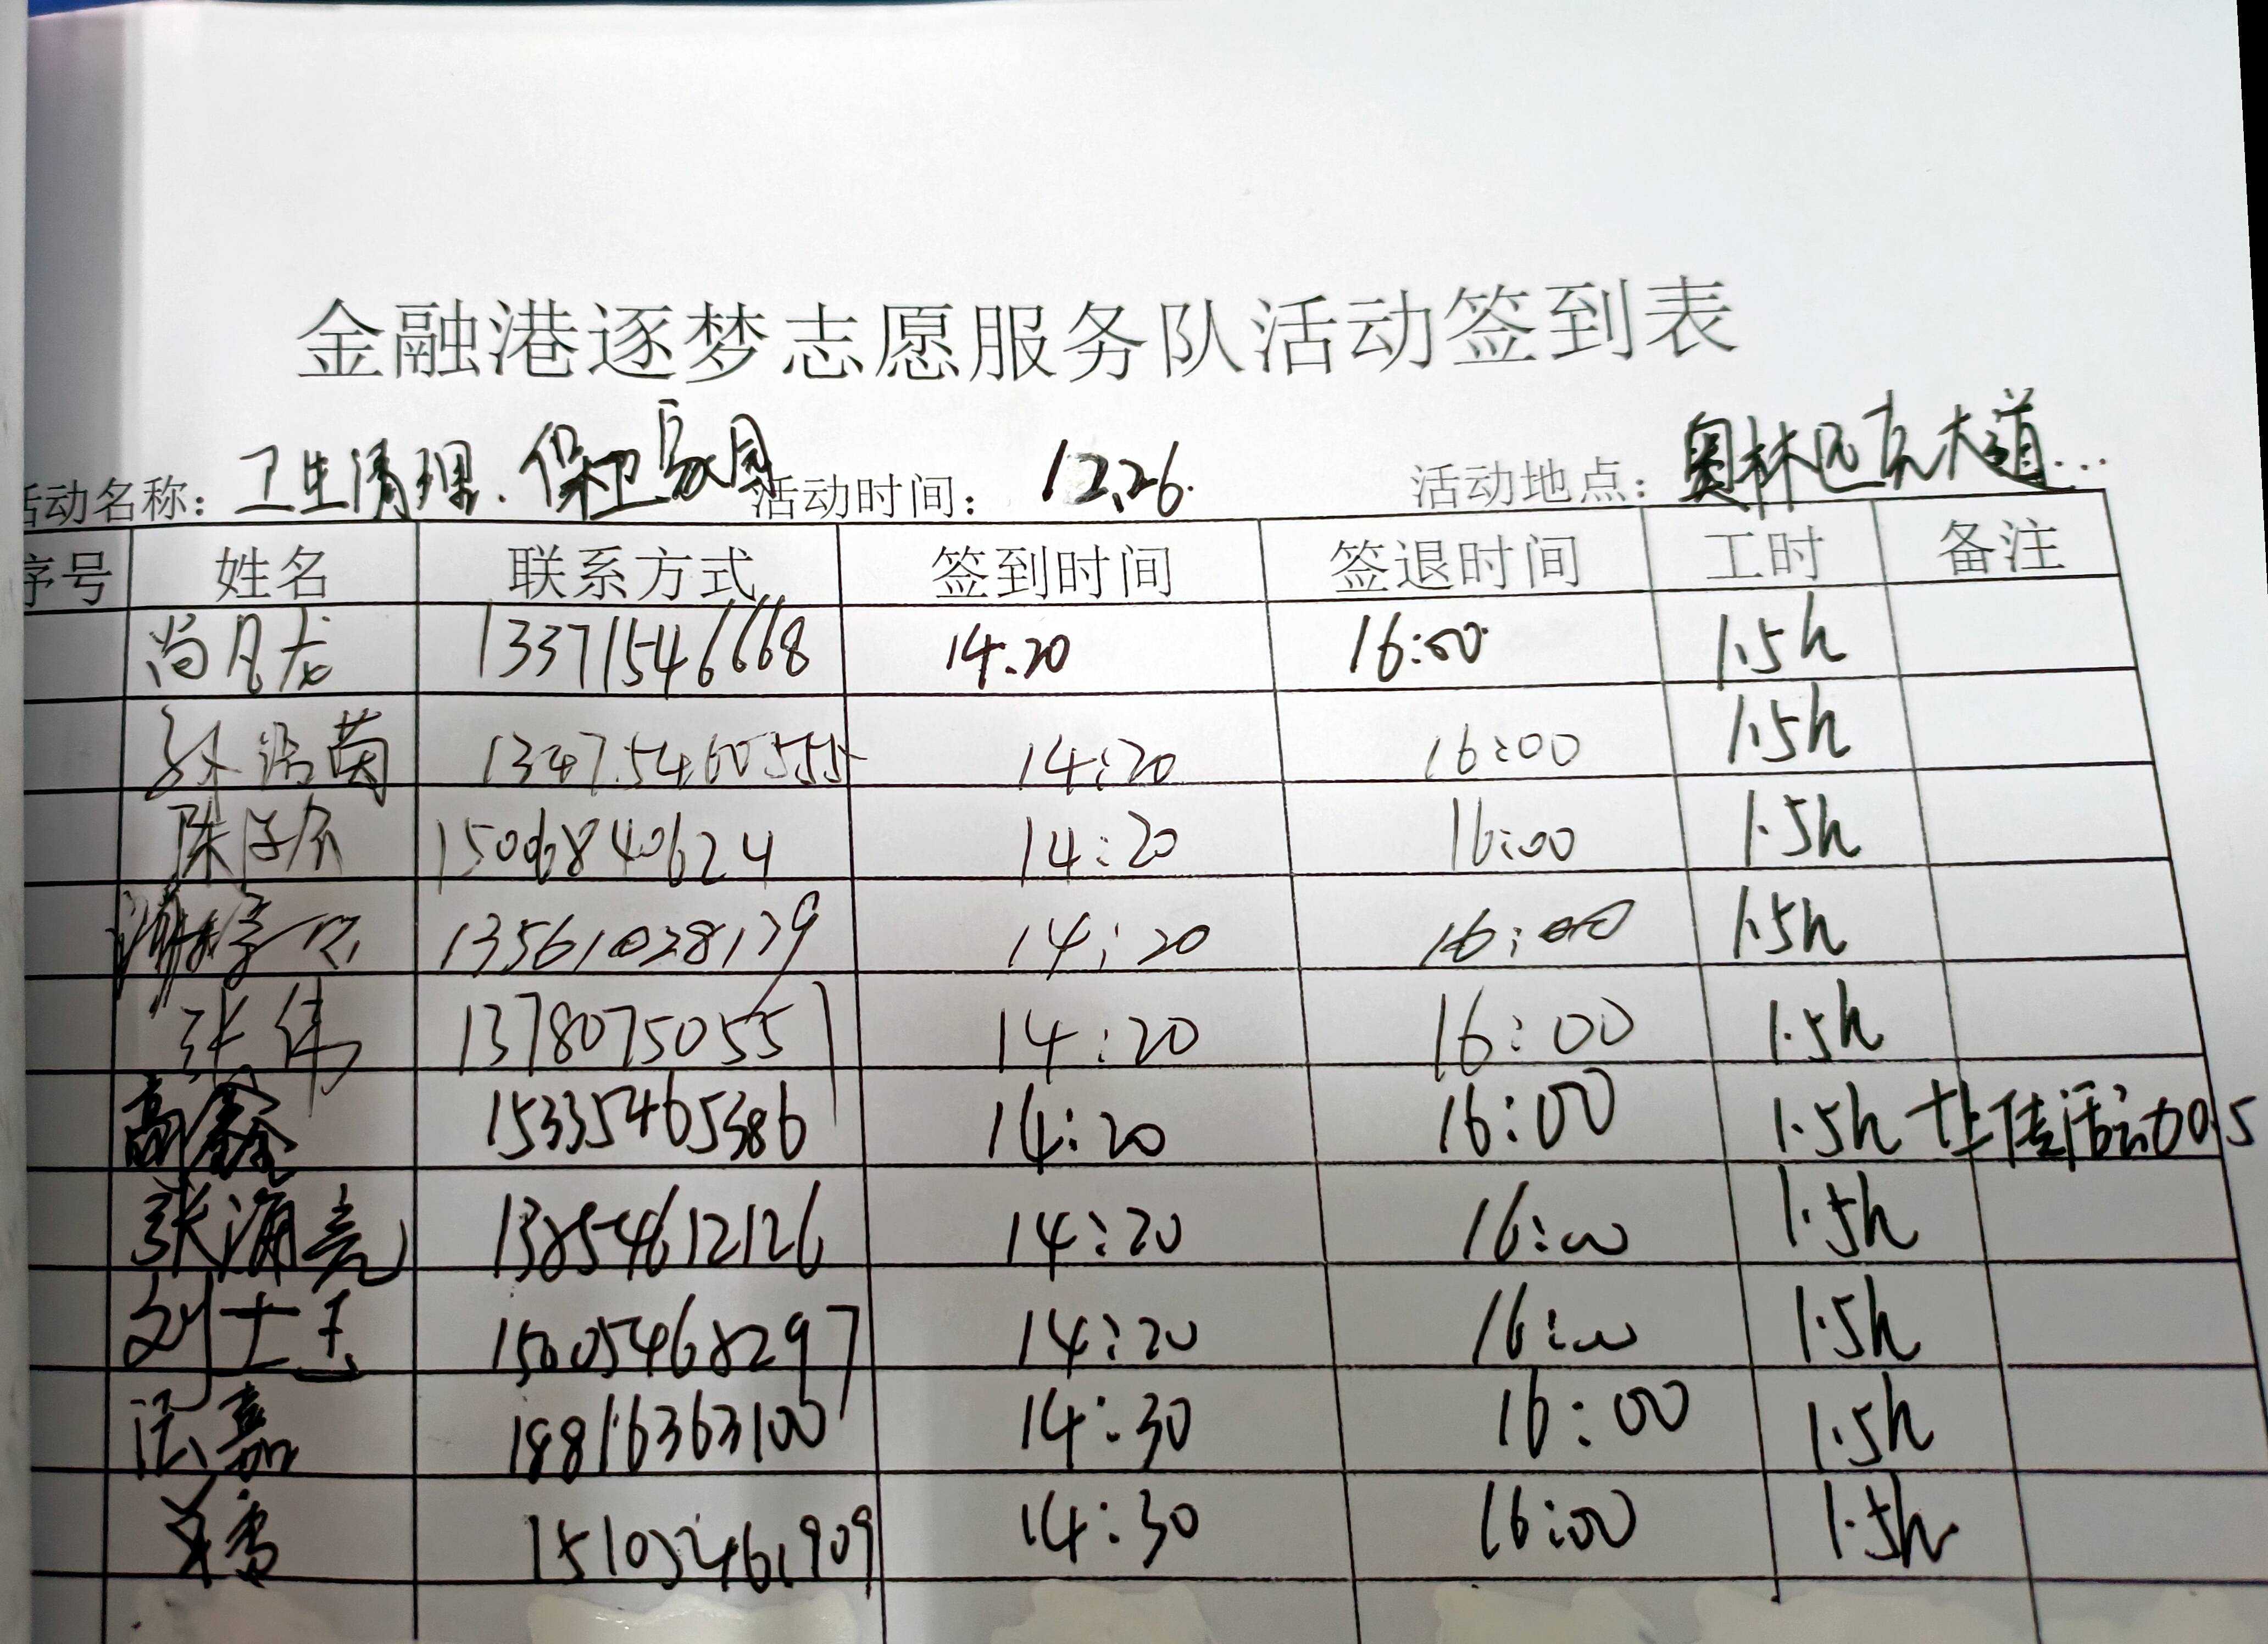 金融港逐梦志愿服务队活动签到表
活动名称: 卫生清理.保卫家园 活动时间: 12.26. 活动地点: 奥林匹克大道...
序号 姓名 联系方式 签到时间 签退时间 工时 备注
尚凡龙 13371546668 14:20 16:00 1.5h
孙洁茵 13475460555 14:20 16:00 1.5h
陈 15006840624 14:20 16:00 1.5h
谢 13561028139 14:20 16:00 1.5h
张伟 13780750551 14:20 16:00 1.5h
高鑫 15335465386 14:20 16:00 1.5h+上传活动0.5
张海亮 13854612126 14:20 16:00 1.5h
刘士玉 15605468297 14:20 16:00 1.5h
嘉 18816363100 14:30 16:00 1.5h
14:30 16:00 1.5h